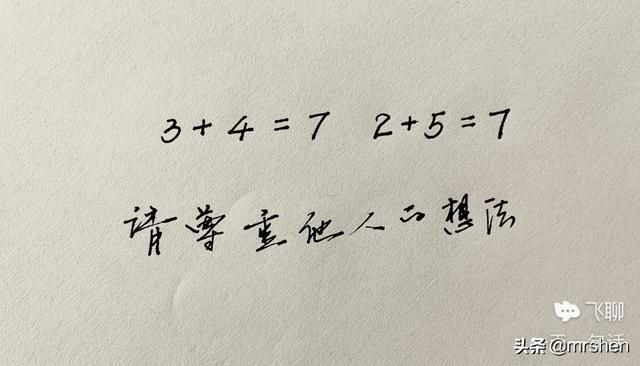 3+4=7 2+5=7
请尊重他人的想法
飞聊
头条 @mrshen